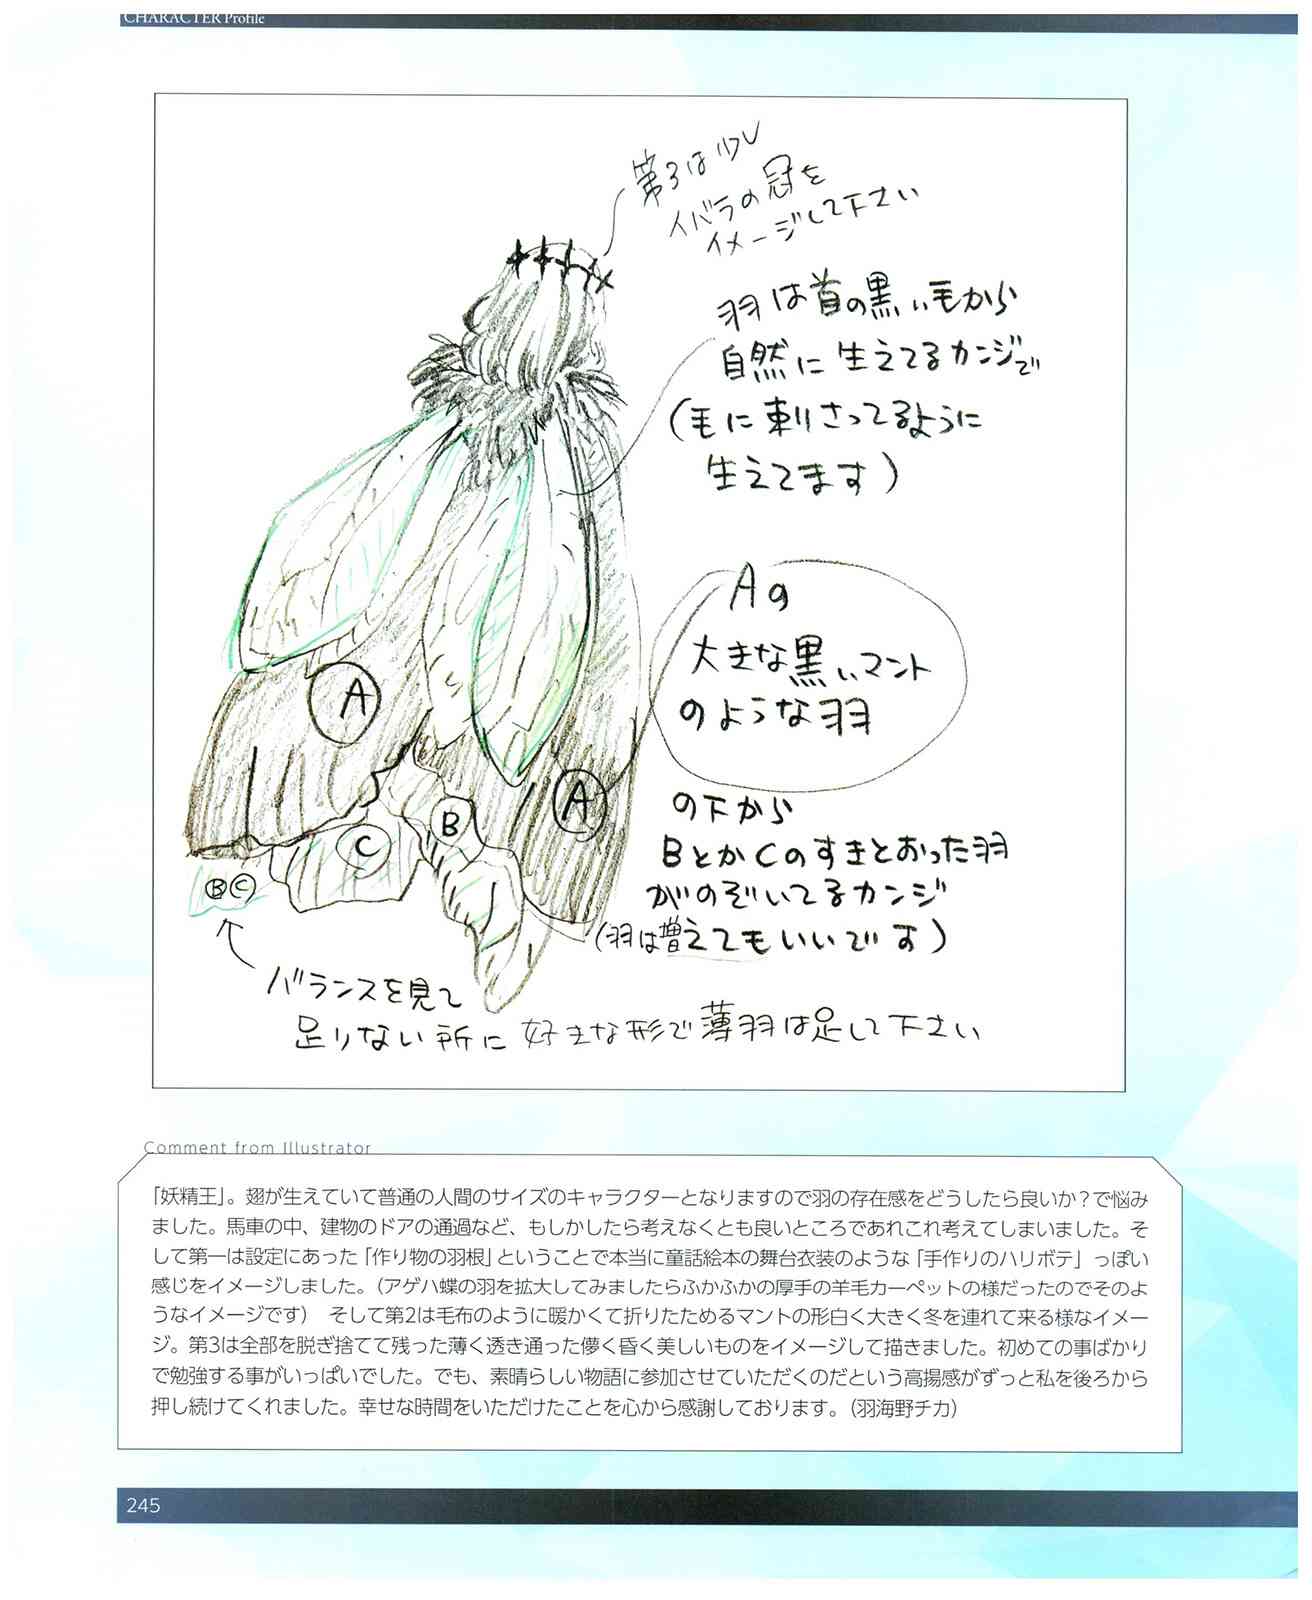 CHARACTER Profile
第3は少し
イバラの冠を
イメージして下さい
羽は首の黒い毛から
自然に生えてるカンジで
(毛に刺さってるように
生えてます)
Aの
大きな黒いマント
のような羽
A
A
の下から
B
C
BとかCのすきとおった羽
がのぞいてるカンジ
B C
(羽は増えてもいいです)
バランスを見て
足りない所に好きな形で薄羽は足して下さい
Comment from Illustrator
「妖精王」。翅が生えていて普通の人間のサイズのキャラクターとなりますので羽の存在感をどうしたら良いか？で悩み
ました。馬車の中、建物のドアの通過など、もしかしたら考えなくとも良いところであれこれ考えてしまいました。そ
して第一は設定にあった「作り物の羽根」ということで本当に童話絵本の舞台衣装のような「手作りのハリボテ」っぽい
感じをイメージしました。（アゲハ蝶の羽を拡大してみましたらふかふかの厚手の羊毛カーペットの様だったのでそのよ
うなイメージです）　そして第2は毛布のように暖かくて折りたためるマントの形白く大きく冬を連れて来る様なイメー
ジ。第3は全部を脱ぎ捨てて残った薄く透き通った儚く昏く美しいものをイメージして描きました。初めての事ばかり
で勉強する事がいっぱいでした。でも、素晴らしい物語に参加させていただくのだという高揚感がずっと私を後ろから
押し続けてくれました。幸せな時間をいただけたことを心から感謝しております。（羽海野チカ）
245